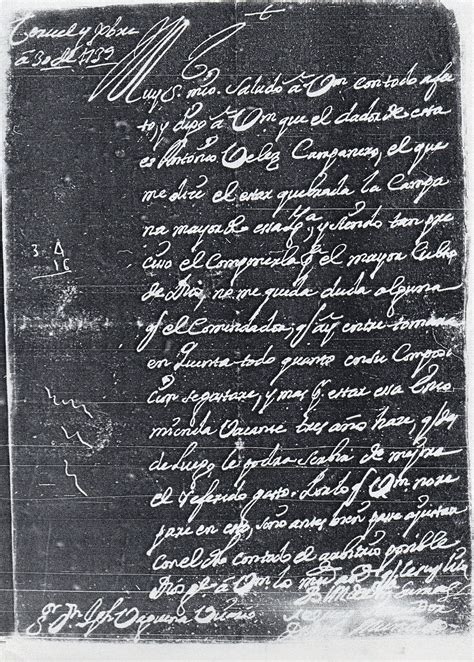 Teruel y Nobre
à 30 de 1739
Muy S. mio. Saludo à Vm con todo afec
to, y digo à Vm. que el dador de esta
es Antonio Velez Campanero, el que
me dize el estar quebrada la Campa
na mayor de essa Yg.ª y siendo tan pre
ciso el Componerla p.ª el mayor Culto
de Dios no me queda duda alguna
q el Comendador, q aÿ entre tomara
en quenta todo quanto en su Composi
cion se gastare, y mas q. estar essa Enco
mienda Vacante tres años haze, q des
de luego le podra servir de
el referido gasto. Por lo q Vm no re
pare en esto, sino antes bien passe ajustar
con el dho con todo el posible
Dios g.e à Vm. los m.s a.s
S.r D.n Jph. Vaquero Vicario